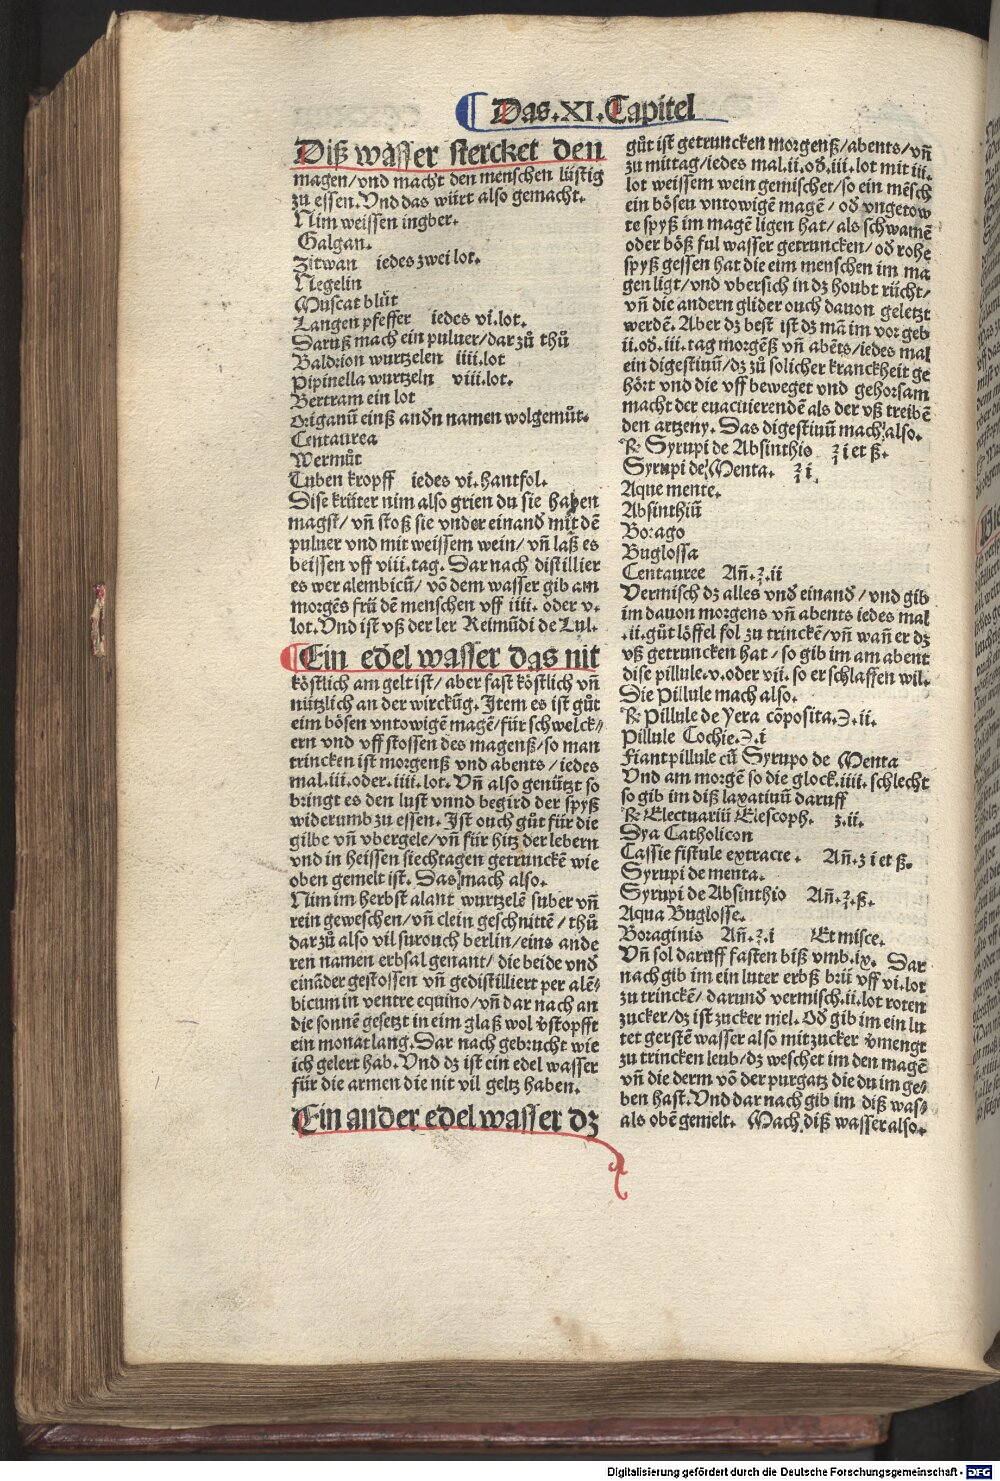 Das .XI. Capitel
Diß wasser stercket den
magen/vnd macht den menschen lüstig
zu essen. Vnd das würt also gemacht.
Nim weissen ingber.
Galgan.
Zitwan iedes zwei lot.
Negelin
Muscat blüt
Langen pfeffer iedes vi. lot.
Daruß mach ein puluer/dar zů thů
Baldrion wurtzelen iiii. lot
Pipinella wurtzeln viii. lot.
Bertram ein lot
Origanū einß andn namen wolgemůt.
Centaurea
Wermůt
Tuben kropff iedes vi. hantfol.
Dise krüter nim also grien du sie haben
magst/ vñ stoß sie vnder einand mit dē
puluer vnd mit weissem wein/ vñ laß es
beissen vff viii. tag. Dar nach distillier
es wer alembicū/ vō dem wasser gib am
morgēs frü dē menschen vff iiii. oder v.
lot. Vnd ist vß der ler Reimūdi de Lul.
Ein edel wasser das nit
köstlich am gelt ist/ aber fast köstlich vñ
nützlich an der wirckūg. Item es ist gůt
eim bösen vntowigē magē/für schwelck/
ern vnd vff stossen des magenß/so man
trincken ist morgenß vnd abents/iedes
mal. iii. oder. iiii. lot. Vñ also genützt so
bringt es den lust vnnd begird der spyß
widerumb zu essen. Ist ouch gůt für die
gilbe vñ vbergele/vñ für hitz der lebern
vnd in heissen siechtagen getrunckē wie
oben gemelt ist. Das mach also.
Nim im herbst alant wurtzelē suber vñ
rein geweschen/vñ clein geschnittē/ thů
dar zů also vil surouch berlin/eins ande
ren namen erbsal genant/ die beide vnd
eināder gestossen vñ gedistilliert per alē/
bicum in ventre equino/vñ dar nach an
die sonnē gesetzt in eim glaß wol vstopfft
ein monat lang. Dar nach gebrucht wie
ich gelert hab. Vnd dz ist ein edel wasser
für die armen die nit vil geltz haben.
Ein ander edel wasser dz
gůt ist getruncken morgenß/abents/vñ
zu mittag/iedes mal. ii. od. iii. lot mit iii.
lot weissem wein gemischet/so ein mēsch
ein bösen vntowigē magē/ od vngetow
te spyß im magē ligen hat/ als schwamē
oder böß ful wasser getruncken/ od rohe
spyß gessen hat die eim menschen im ma
gen ligt/vnd vbersich in dz houbt rücht/
vñ die andern glider ouch dauon geletzt
werdē. Aber dz best ist dz mā im vor geb
ii. od. iii. tag morgēß vñ abēts/iedes mal
ein digestiuū/dz zů solicher kranckheit ge
hört vnd die vff beweget vnd gehorsam
macht der euacuierendē als der vß treibē
den artzeny. Das digestiuū mach also.
℞ Syrupi de Absinthio ℥ i et ß.
Syrupi de Menta. ℥ i.
Aque mente.
Absinthiū
Borago
Buglossa
Centauree Añ. ℥. ii
Vermisch dz alles vnd einand/ vnd gib
im dauon morgens vñ abents iedes mal
.ii. gůt löffel fol zu trinckē/vñ wañ er dz
vß getruncken hat/ so gib im am abent
dise pillule. v. oder vii. so er schlaffen wil.
Die Pillule mach also.
℞ Pillule de Yera cōposita. ℈. ii.
Pillule Cochie. ℈. i
Fiant pillule cū Syrupo de Menta
Vnd am morgē so die glock. iiii. schlecht
so gib im diß laxatiuū daruff
℞ Electuarii Elescoph. ʒ. ii.
Dya Catholicon
Cassie fistule extracte. Añ. ʒ i et ß.
Syrupi de menta.
Syrupi de Absinthio Añ. ℥. ß.
Aqua Buglosse.
Boraginis Añ. ℥. i Et misce.
Vñ sol daruff fasten biß vmb. ix. Dar
nach gib im ein luter erbß brü vff vi. lot
zu trinckē/ darund vermisch. ii. lot roten
zucker/dz ist zucker niel. Od gib im ein lu
tet gerstē wasser also mit zucker vmengt
zu trincken leub/dz weschet im den magē
vñ die derm vō der purgatz die du im ge/
ben hast. Vnd dar nach gib im diß was/
als obē gemelt. Mach diß wasser also.
Digitalisierung gefördert durch die Deutsche Forschungsgemeinschaft - DFG